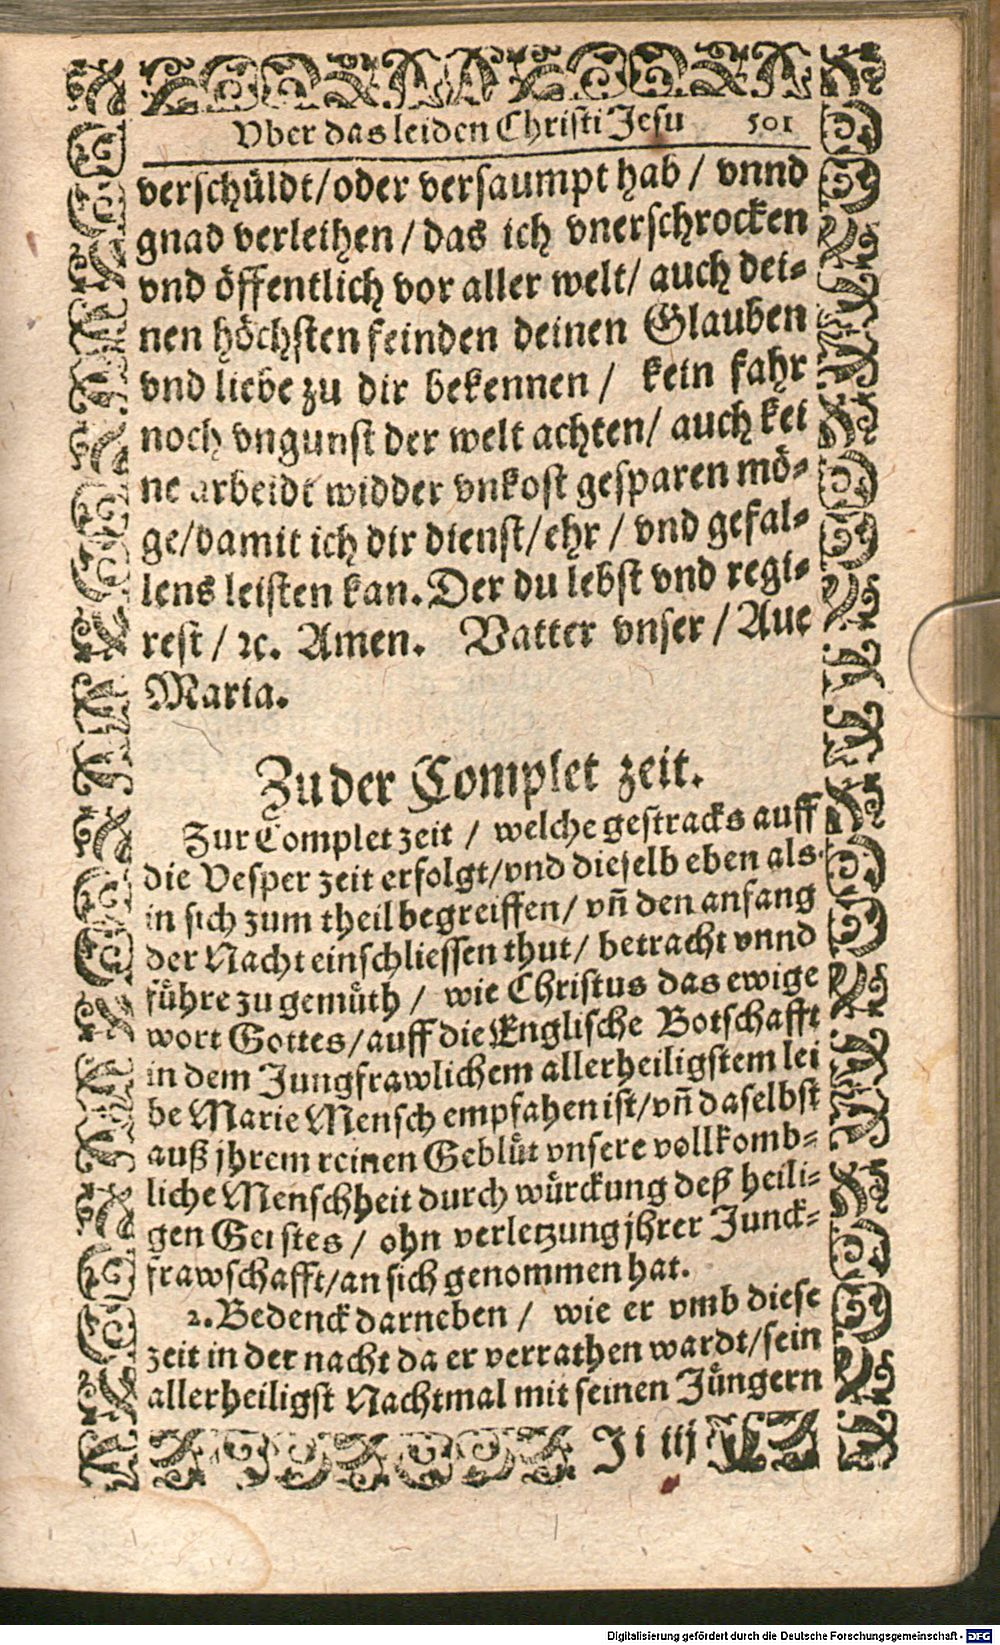 Vber das leiden Christi Jesu 501
verschüldt/oder versaumpt hab / vnnd
gnad verleihen / das ich vnerschrocken
vnd öffentlich vor aller welt/ auch dei-
nen höchsten feinden deinen Glauben
vnd liebe zu dir bekennen / kein fahr
noch vngunst der welt achten/ auch kei
ne arbeidt widder vnkost gesparen mö-
ge/damit ich dir dienst/ehr / vnd gefal-
lens leisten kan. Der du lebst vnd regi-
rest / ꝛc. Amen. Vatter vnser / Aue
Maria.
Zu der Complet zeit.
Zur Complet zeit / welche gestracks auff
die Vesper zeit erfolgt/vnd dieselb eben als
in sich zum theil begreiffen/ vñ den anfang
der Nacht einschliessen thut/ betracht vnnd
führe zu gemüth / wie Christus das ewige
wort Gottes/auff die Englische Botschafft
in dem Jungfrawlichem allerheiligstem lei
be Marie Mensch empfahen ist/vñ daselbst
auß jhrem reinen Geblüt vnsere vollkomb-
liche Menschheit durch würckung deß heili-
gen Geistes / ohn verletzung jhrer Junck-
frawschafft/an sich genommen hat.
2. Bedenck darneben / wie er vmb diese
zeit in der nacht da er verrathen wardt/sein
allerheiligst Nachtmal mit seinen Jüngern
Ji iij
Digitalisierung gefördert durch die Deutsche Forschungsgemeinschaft - DFG